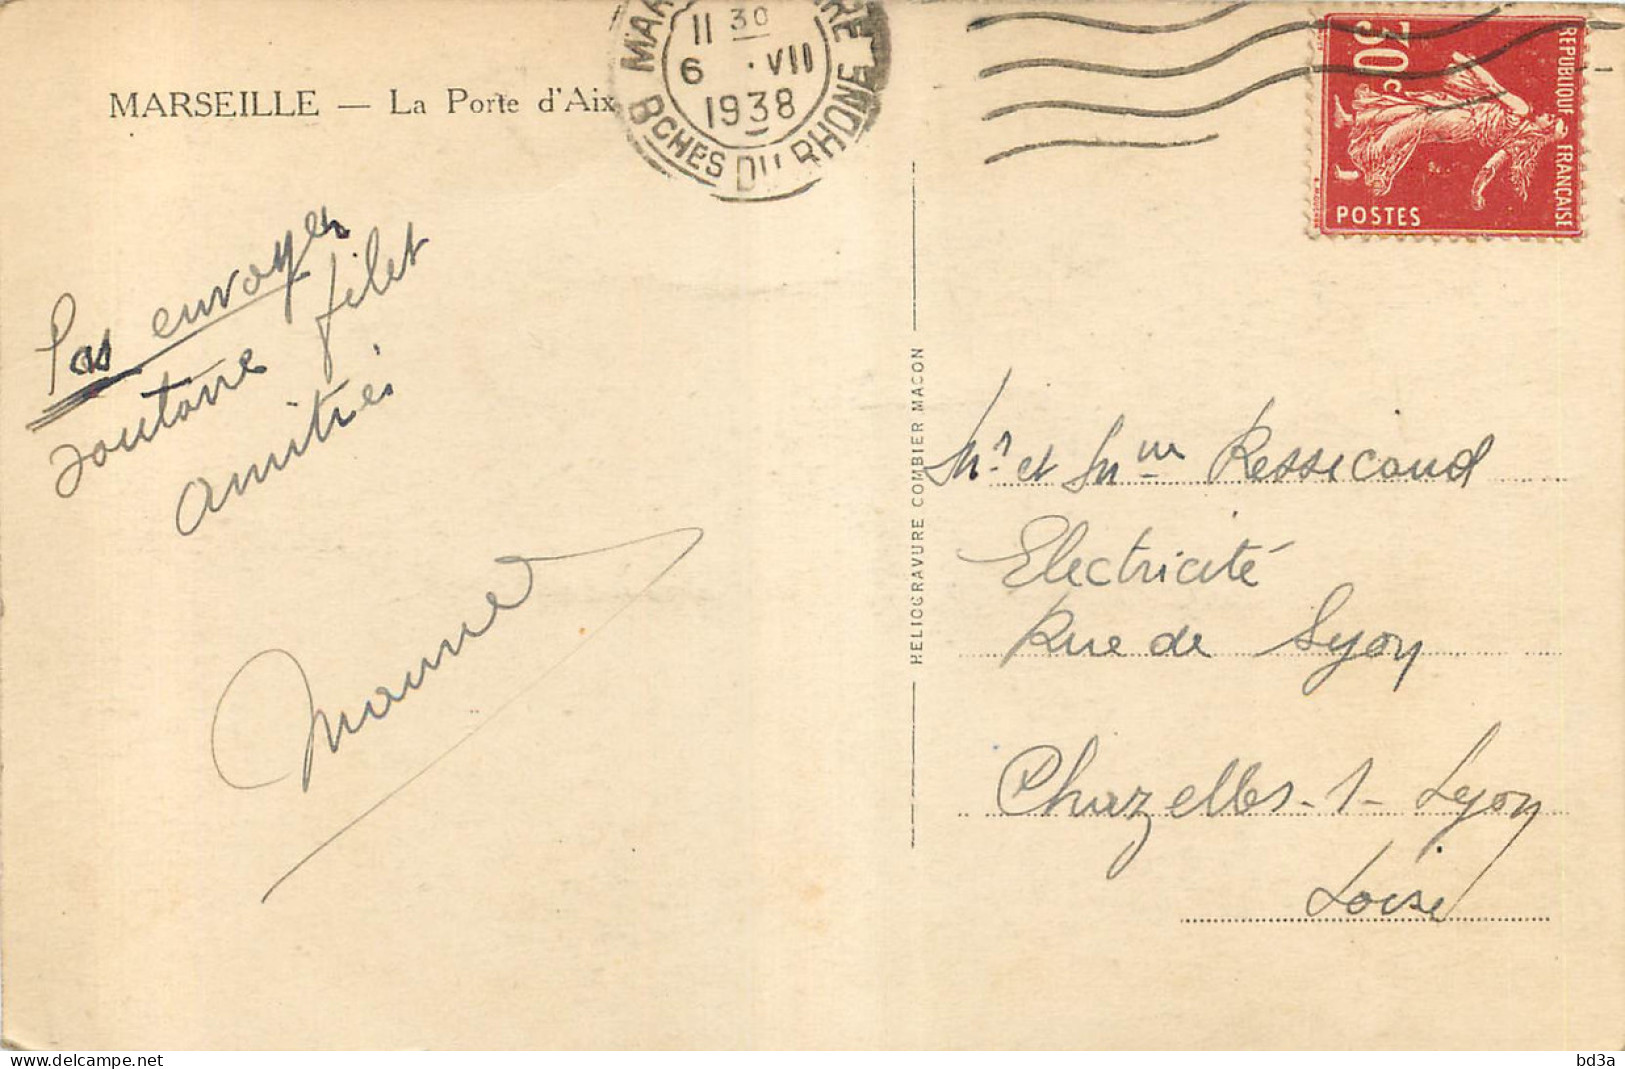 MARSEILLE — La Porte d'Aix
11 30
6 · VII
1938
BCHES DU RHONE
30c
REPUBLIQUE FRANÇAISE
POSTES
Pas envoyer
soutane filet
amitiés
HELIOGRAVURE COMBIER MACON
Mr et Mme Ressicaud
Electricité
Rue de Lyon
Chazelles-s-Lyon
Loire
delcampe.net
bd3a